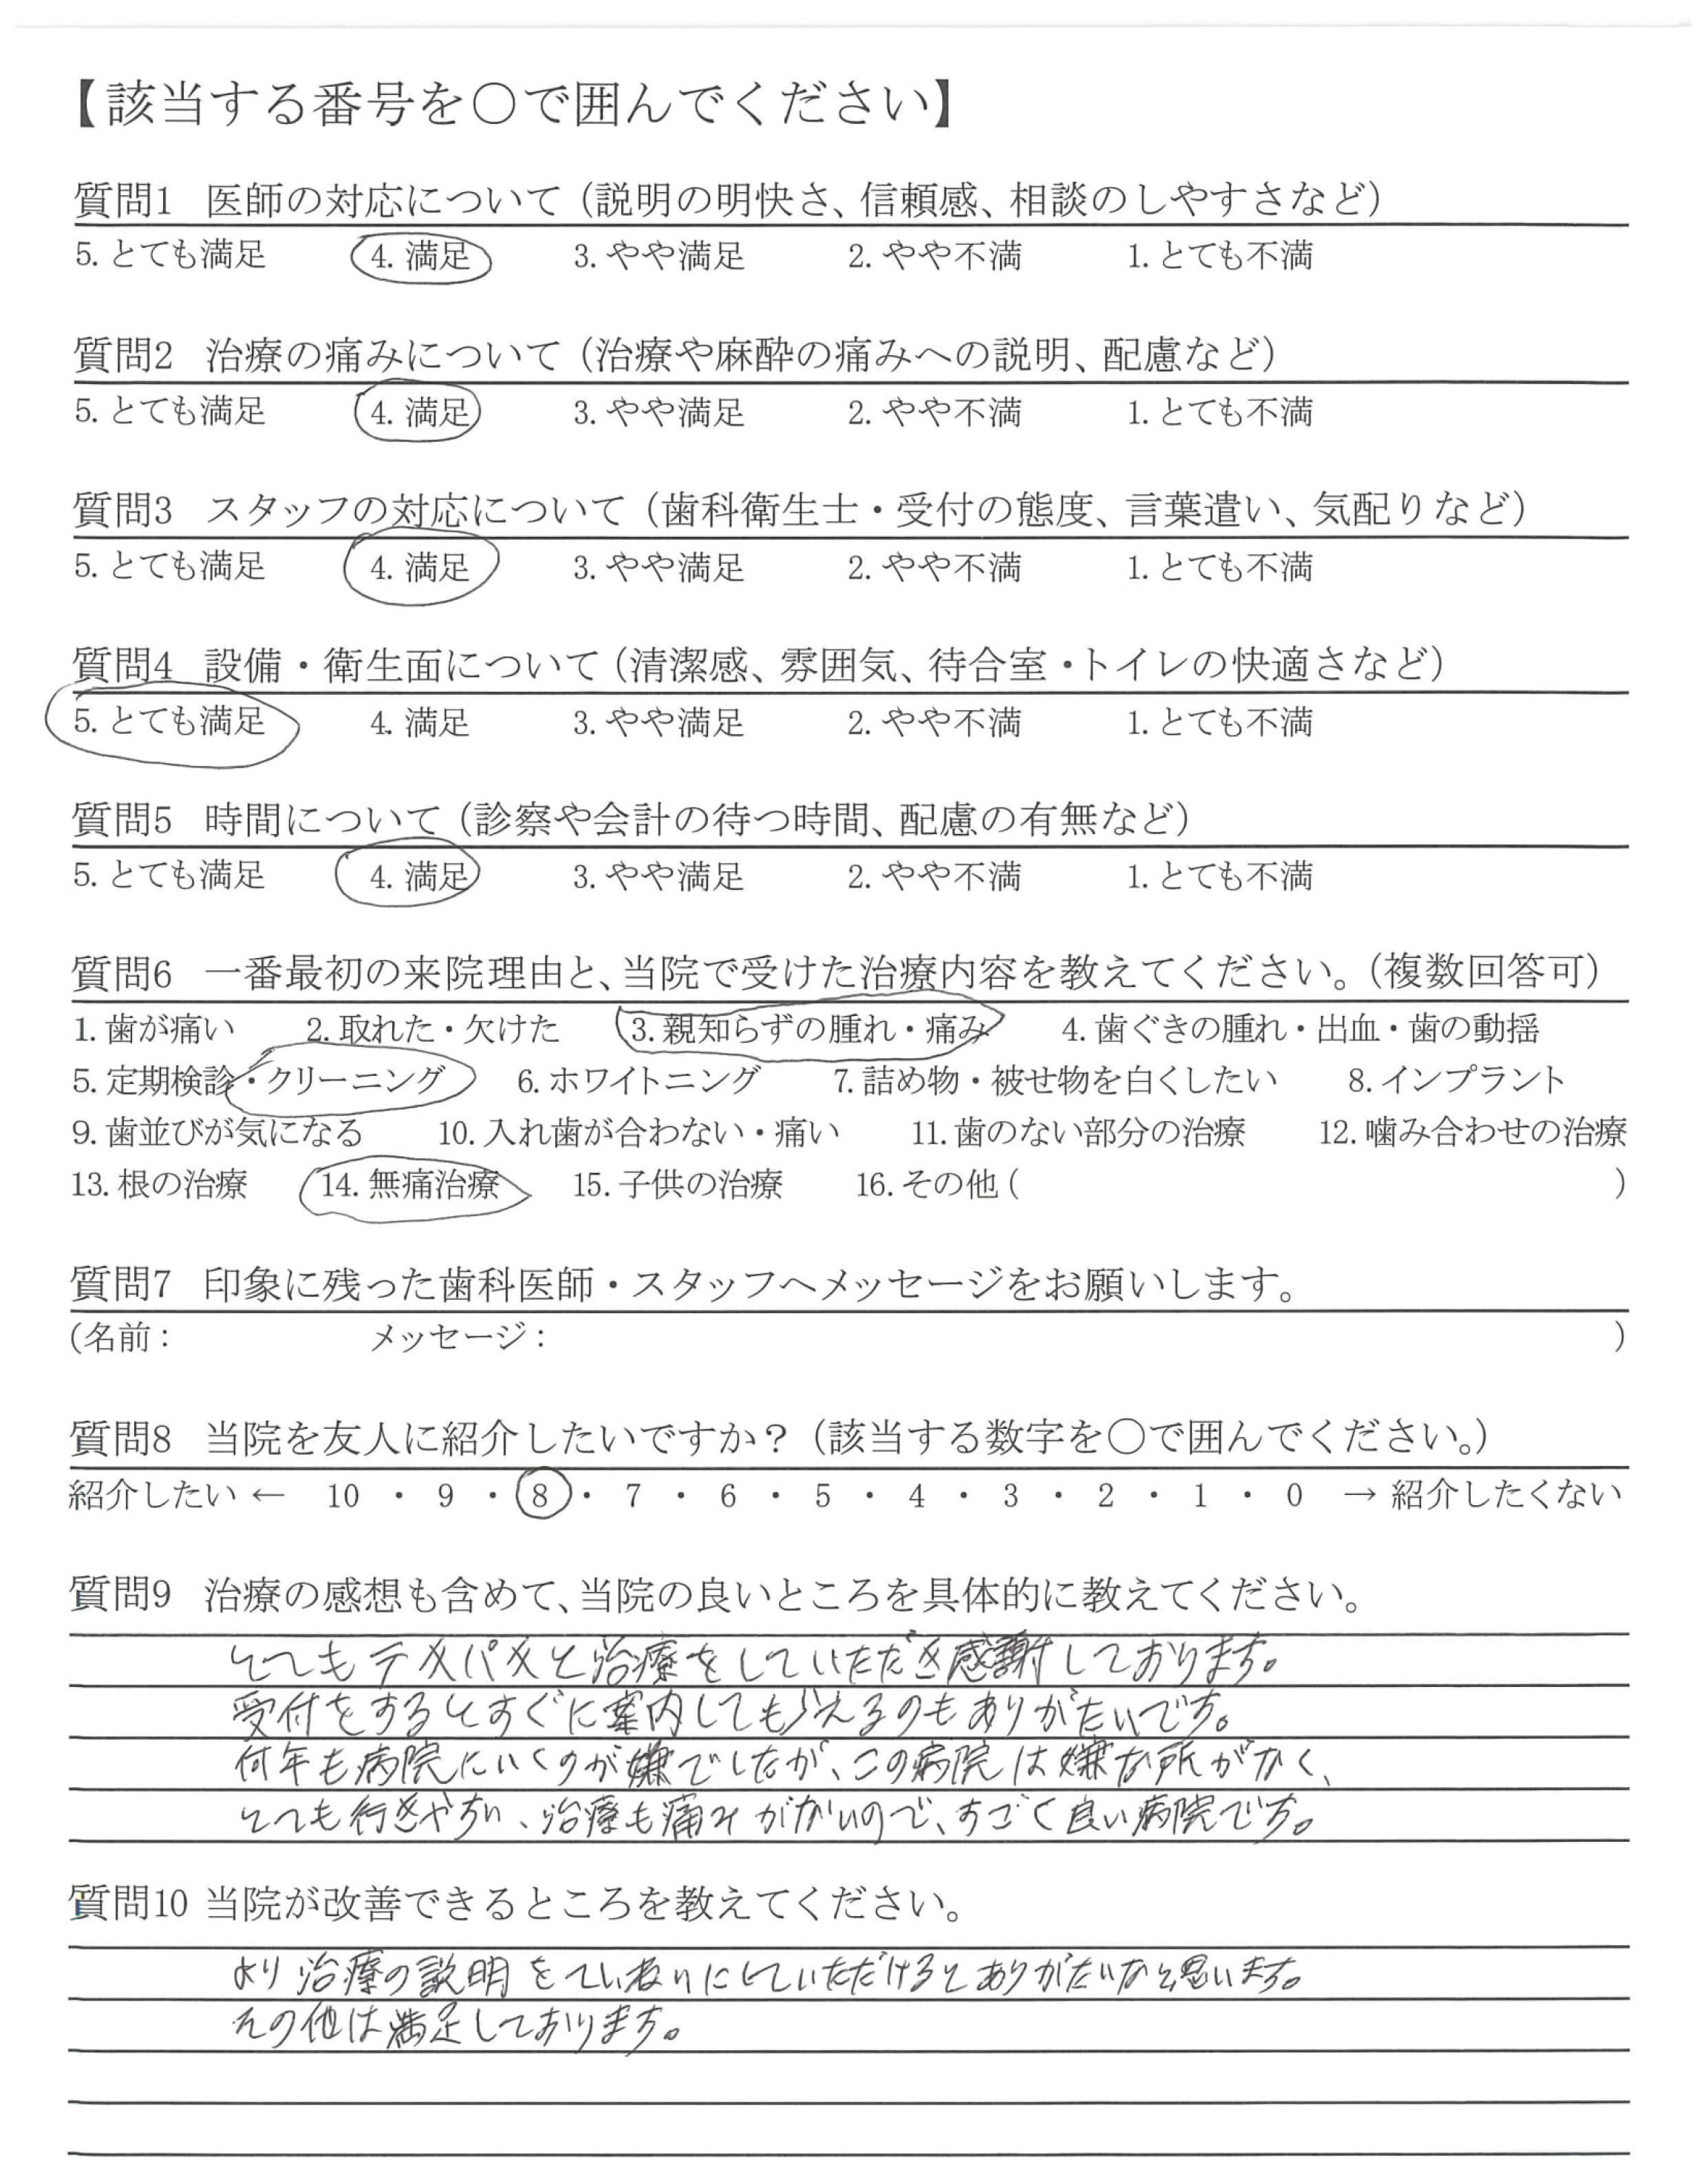 【該当する番号を〇で囲んでください】
質問1 医師の対応について（説明の明快さ、信頼感、相談のしやすさなど）
5. とても満足 4. 満足 3. やや満足 2. やや不満 1. とても不満
質問2 治療の痛みについて（治療や麻酔の痛みへの説明、配慮など）
5. とても満足 4. 満足 3. やや満足 2. やや不満 1. とても不満
質問3 スタッフの対応について（歯科衛生士・受付の態度、言葉遣い、気配りなど）
5. とても満足 4. 満足 3. やや満足 2. やや不満 1. とても不満
質問4 設備・衛生面について（清潔感、雰囲気、待合室・トイレの快適さなど）
5. とても満足 4. 満足 3. やや満足 2. やや不満 1. とても不満
質問5 時間について（診察や会計の待つ時間、配慮の有無など）
5. とても満足 4. 満足 3. やや満足 2. やや不満 1. とても不満
質問6 一番最初の来院理由と、当院で受けた治療内容を教えてください。（複数回答可）
1. 歯が痛い 2. 取れた・欠けた 3. 親知らずの腫れ・痛み 4. 歯ぐきの腫れ・出血・歯の動揺
5. 定期検診・クリーニング 6. ホワイトニング 7. 詰め物・被せ物を白くしたい 8. インプラント
9. 歯並びが気になる 10. 入れ歯が合わない・痛い 11. 歯のない部分の治療 12. 噛み合わせの治療
13. 根の治療 14. 無痛治療 15. 子供の治療 16. その他 ( )
質問7 印象に残った歯科医師・スタッフへメッセージをお願いします。
(名前： メッセージ： )
質問8 当院を友人に紹介したいですか？（該当する数字を〇で囲んでください。）
紹介したい ← 10 ・ 9 ・ 8 ・ 7 ・ 6 ・ 5 ・ 4 ・ 3 ・ 2 ・ 1 ・ 0 → 紹介したくない
質問9 治療の感想も含めて、当院の良いところを具体的に教えてください。
とてもテキパキと治療をしていただき感謝しております。
受付をするとすぐに案内してもらえるのもありがたいです。
何年も病院にいくのが嫌でしたが、この病院は嫌な所がなく、
とても行きやすい、治療も痛みがないので、すごく良い病院です。
質問10 当院が改善できるところを教えてください。
より治療の説明をていねいにしていただけるとありがたいなと思います。
その他は満足しております。